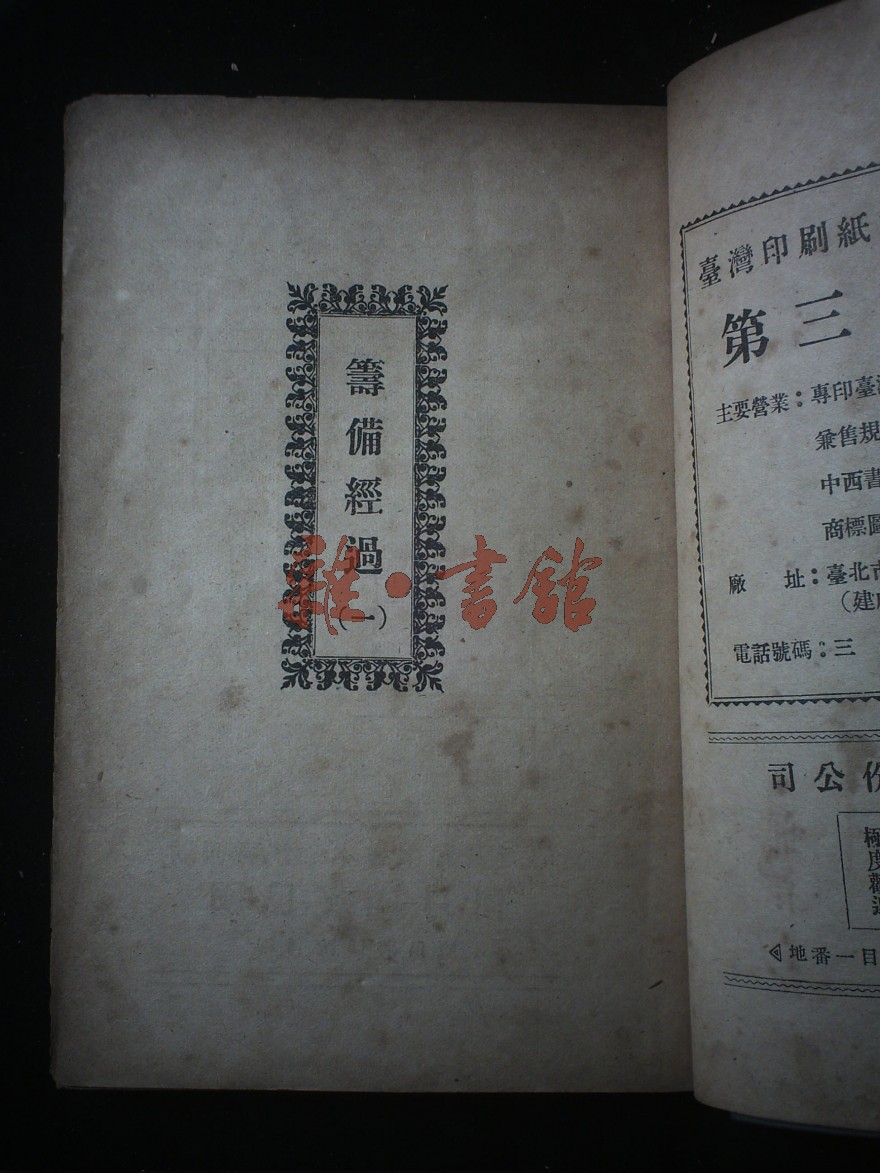 籌備經過
(一)
雜·書館
臺灣印刷紙
第三
主要營業：專印臺灣
兼售規
中西書
商標圖
廠 址：臺北市
(建
電話號碼：三
份公司
極度歡迎
◁地番一目